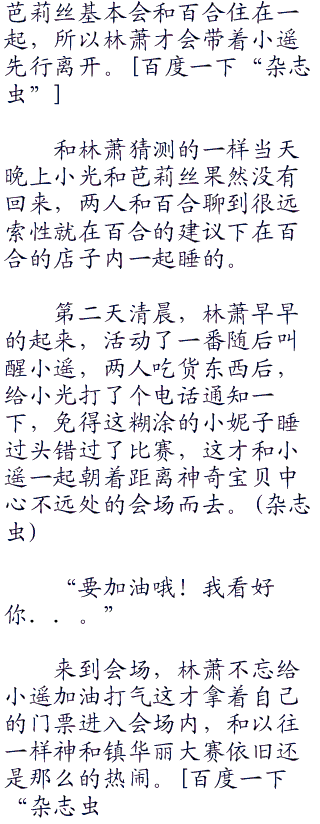 芭莉丝基本会和百合住在一
起，所以林萧才会带着小遥
先行离开。[百度一下“杂志
虫”]
和林萧猜测的一样当天
晚上小光和芭莉丝果然没有
回来，两人和百合聊到很远
索性就在百合的建议下在百
合的店子内一起睡的。
第二天清晨，林萧早早
的起来，活动了一番随后叫
醒小遥，两人吃货东西后，
给小光打了个电话通知一
下，免得这糊涂的小妮子睡
过头错过了比赛，这才和小
遥一起朝着距离神奇宝贝中
心不远处的会场而去。(杂志
虫)
“要加油哦！我看好
你．．。”
来到会场，林萧不忘给
小遥加油打气这才拿着自己
的门票进入会场内，和以往
一样神和镇华丽大赛依旧还
是那么的热闹。[百度一下
“杂志虫